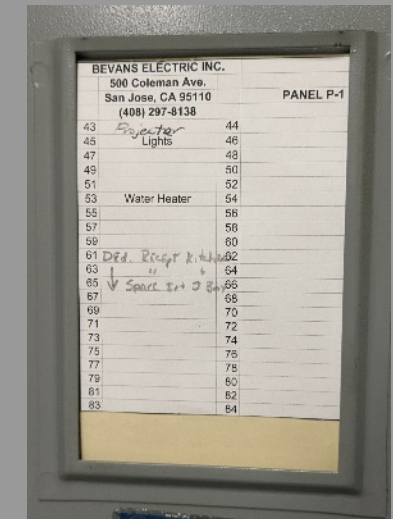 BEVANS ELECTRIC INC.
500 Coleman Ave.
San Jose, CA 95110
(408) 297-8138
PANEL P-1
43 Projector 44
45 Lights 46
47 48
49 50
51 52
53 Water Heater 54
55 56
57 58
59 60
61 Ded. Recept Kitchen 62
63 " " 64
65 Spare 66
67 68
69 70
71 72
73 74
75 76
77 78
79 80
81 82
83 84